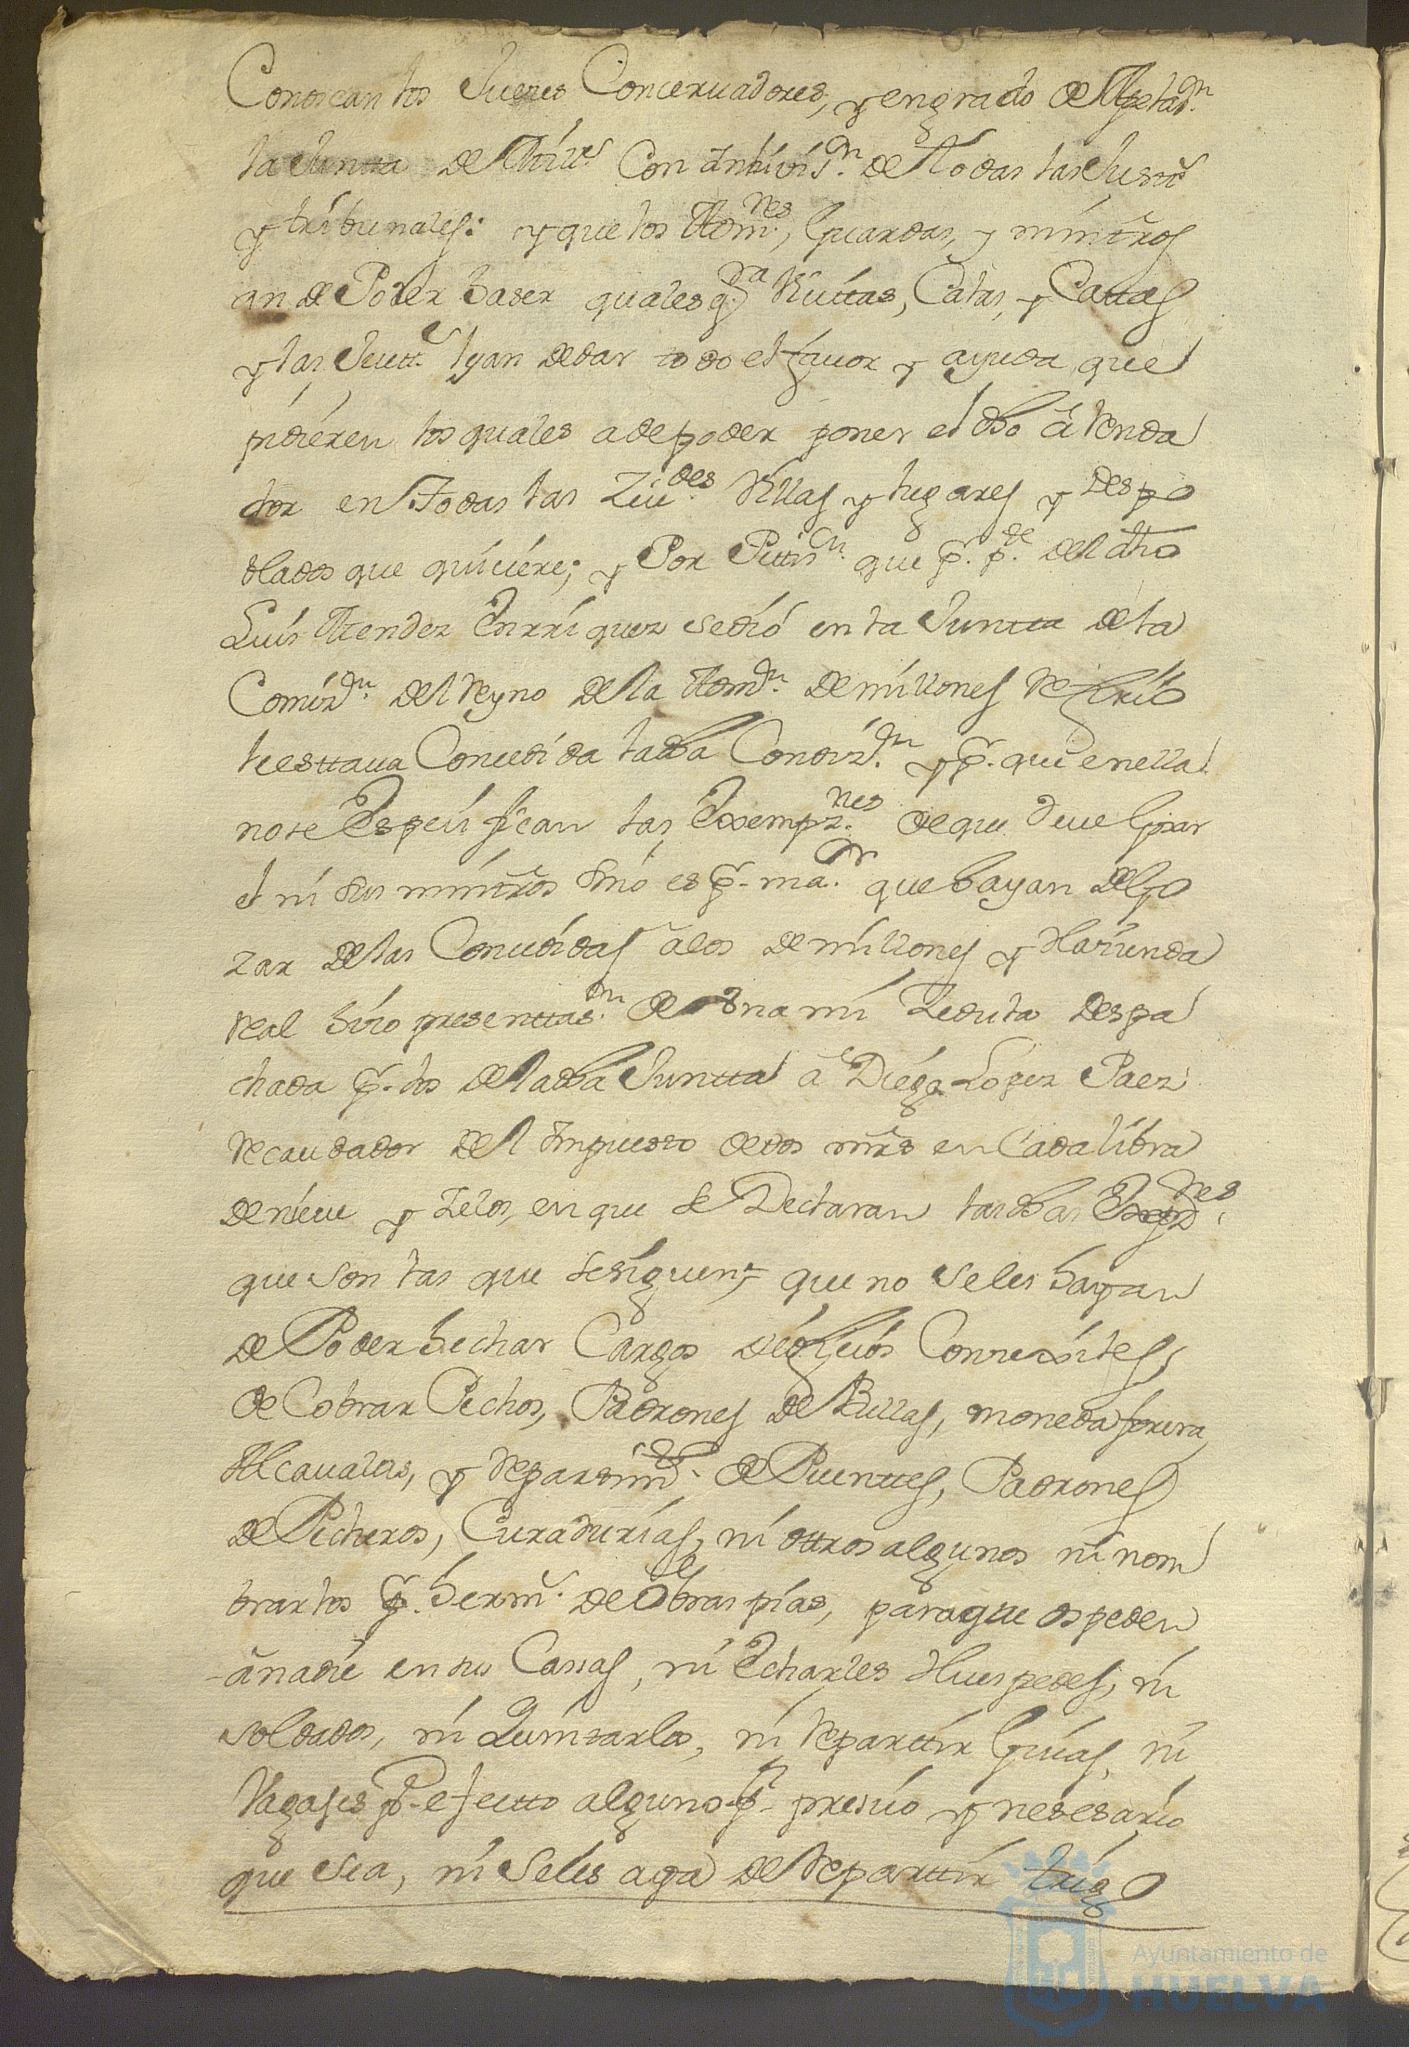 Conoscan los Jueces Concervadores, y en grado de Apelas.on
la Junta de Mill.s Con Inhivis.on de todas las Just.s
y tribunales: y que los Adm.res, Guardas, y ministros
an de Poder haser qualesq.ra Vicitas, Catas, y Cattas
y las Justt.s lyan de dar todo el favor y ayuda que
pidieren los quales a de poder poner el dho arrenda
dor en todas las Ziu.des Villas y lugares y Despo
blados que quiciere; y Por Petis.on que p.r p.te del dho
Luis Mendez Enrriquez se dió en la Juntta de la
Comiz.on del Reyno de la Adm.on de millones refirió
le esttava Concedida la dha Condiz.on y p.r que en ella
no se Espezifican las Exempz.nes de que deve Gozar
el ni sus ministros sino es p.r ma.or que hayan de Go
zar de las Concedidas a los de millones y Hacienda
Real hizo presenttas.on de una mi Zedula despa
chada p.r los de la dha Juntta a Diego Lopez Paez
Recaudador del Impuesto de dos mrs en Cada libra
de nieve y Zelos, en que se Declaran las dhas Exempz.nes
que son las que se siguen, que no se les hayan
de Poder hechar Cargos de ofizios Convexiles,
de Cobrar Pechos, Padrones de Bullas, moneda forera,
Alcavalas, y Repartim.to de Puenttes, Padrones
de Pecheros, Curadurias, ni ottros algunos ni nom
brarlos p.r herm. de Obras pias, para que ospeden
a nadie en sus Casas, ni Echarles Huespedes, ni
soldados, ni Quintarlos, ni Reparttir Guias, ni
Vagajes p.r efectto alguno p.r presiso y nesesario
que sea, ni se les aga de Reparttir trigo
Ayuntamiento de
HUELVA